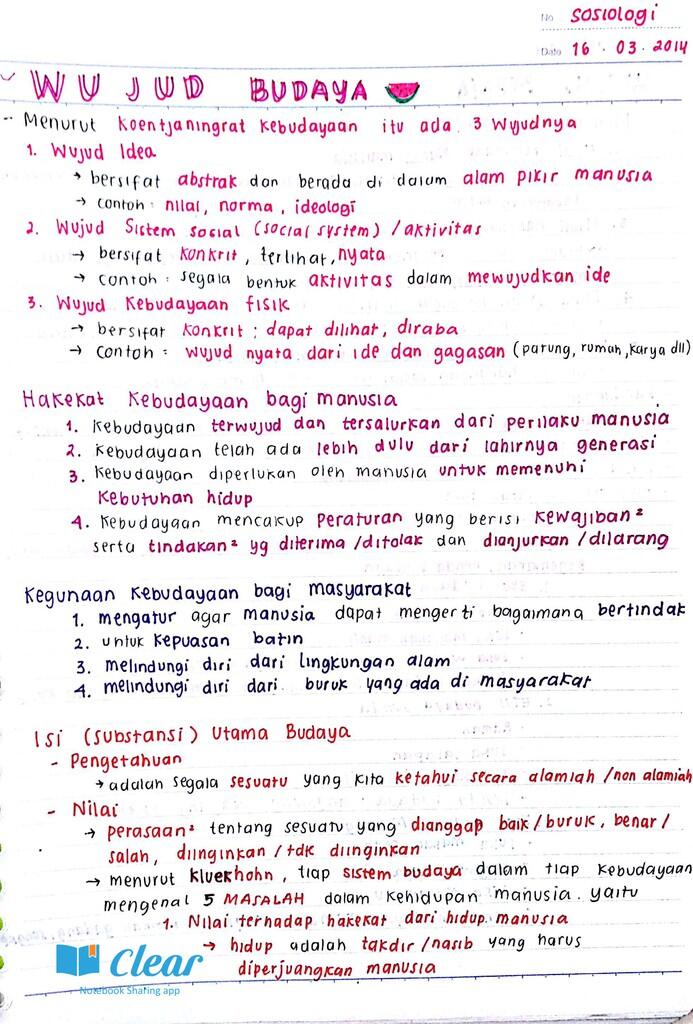 No. Sosiologi
Date 16 . 03 . 2014
WUJUD BUDAYA
- Menurut Koentjaningrat kebudayaan itu ada 3 wujudnya
1. Wujud Idea
→ bersifat abstrak dan berada di dalam alam pikir manusia
→ contoh : nilai, norma, ideologi
2. Wujud Sistem sosial (social system) / aktivitas
→ bersifat konkrit, terlihat, nyata
→ contoh : segala bentuk aktivitas dalam mewujudkan ide
3. Wujud Kebudayaan fisik
→ bersifat konkrit ; dapat dilihat, diraba
→ contoh : wujud nyata dari ide dan gagasan (patung, rumah, karya dll)
Hakekat Kebudayaan bagi manusia
1. Kebudayaan terwujud dan tersalurkan dari perilaku manusia
2. Kebudayaan telah ada lebih dulu dari lahirnya generasi
3. Kebudayaan diperlukan oleh manusia untuk memenuhi
kebutuhan hidup
4. Kebudayaan mencakup peraturan yang berisi kewajiban²
serta tindakan² yg diterima /ditolak dan dianjurkan /dilarang
Kegunaan Kebudayaan bagi masyarakat
1. mengatur agar manusia dapat mengerti bagaimana bertindak
2. untuk kepuasan batin
3. melindungi diri dari lingkungan alam
4. melindungi diri dari buruk yang ada di masyarakat
Isi (substansi) Utama Budaya
- Pengetahuan
→ adalah segala sesuatu yang kita ketahui secara alamiah /non alamiah
- Nilai
→ perasaan² tentang sesuatu yang dianggap baik / buruk, benar /
salah, diinginkan / tdk diinginkan
→ menurut kluekhohn, tiap sistem budaya dalam tiap kebudayaan
mengenal 5 MASALAH dalam kehidupan manusia. yaitu
1. Nilai terhadap hakekat dari hidup manusia
→ hidup adalah takdir /nasib yang harus
diperjuangkan manusia
Clear
Notebook Sharing app